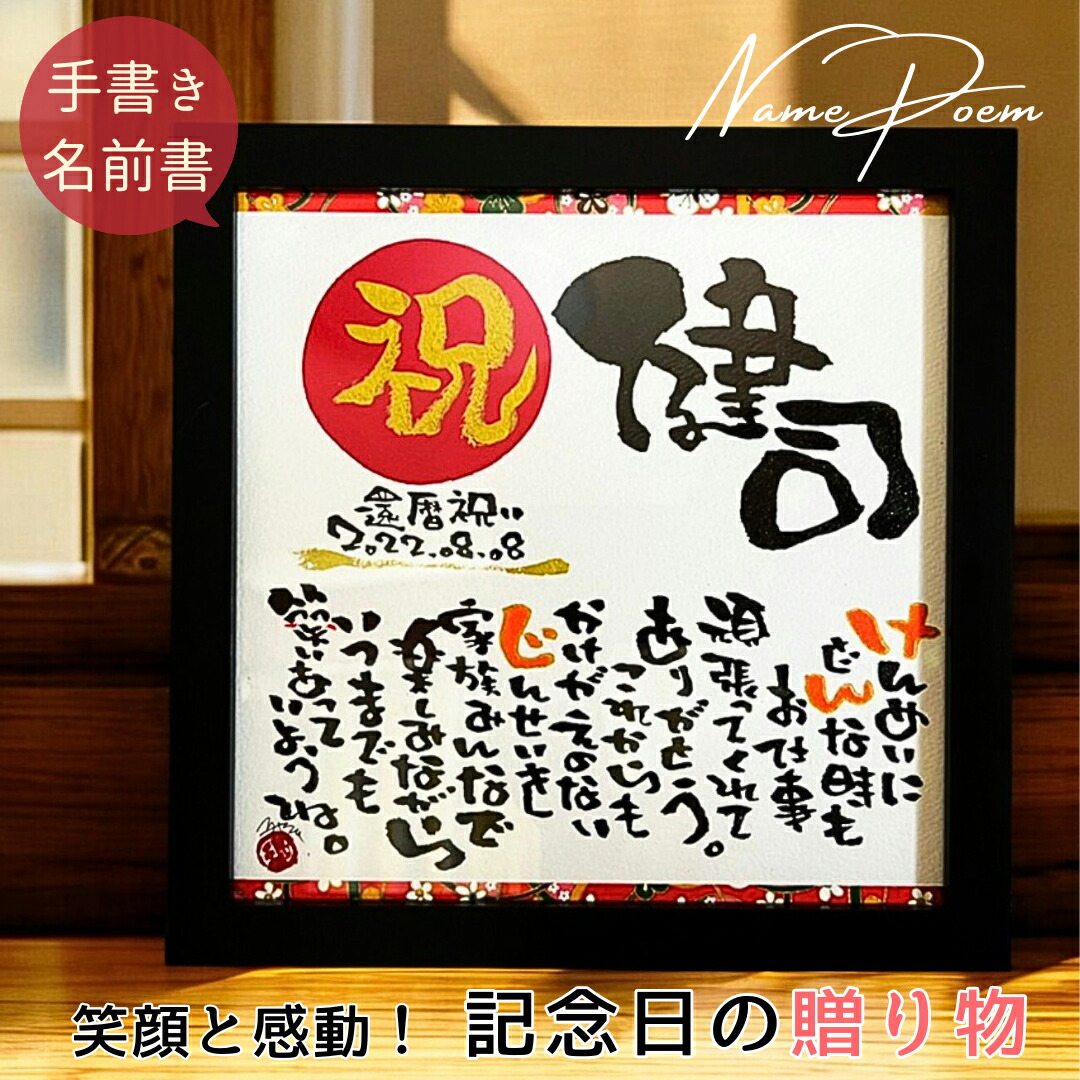 手書き
名前書
Name Poem
健司
祝
還暦祝い
2022.08.08
けんめいに
どんな時も
お仕事
頑張ってくれて
ありがとう。
これからも
かけがえのない
じんせいを
家族みんなで
楽しみながら
いつまでも
笑いあって
いようね。
笑顔と感動！ 記念日の贈り物